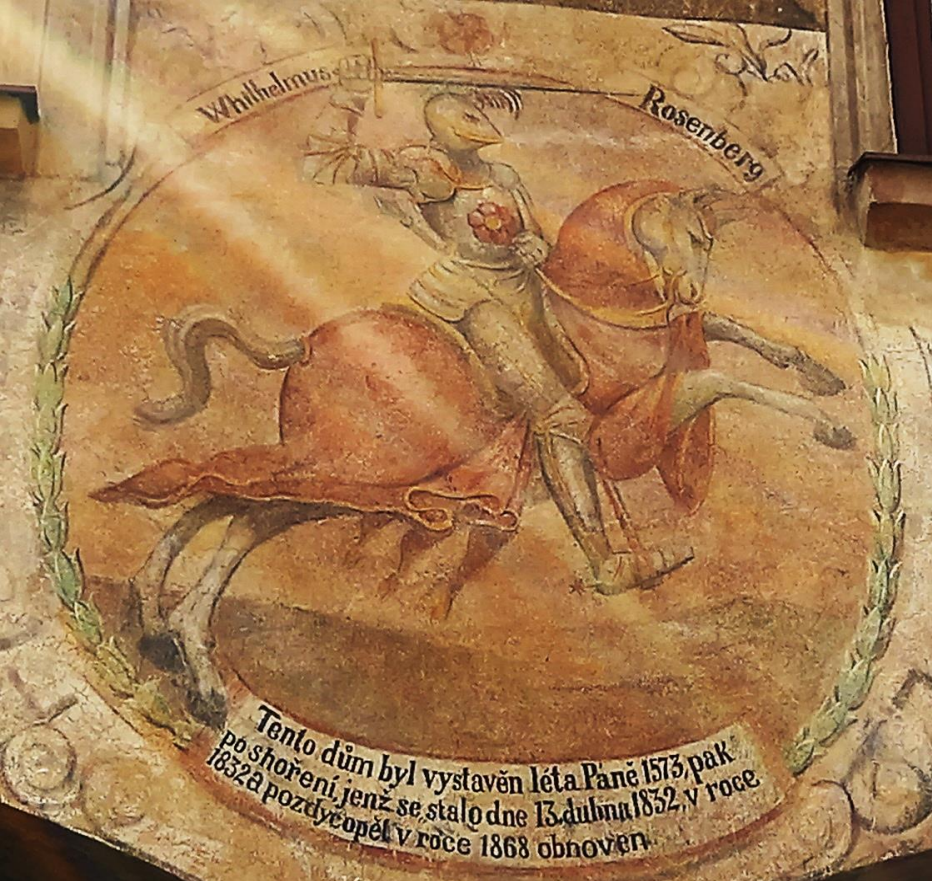 Whilhelmus
Rosenberg
Tento dům byl vystavěn léta Páně 1573, pak
po shoření, jenž se stalo dne 13. dubna 1832, v roce
1832 a pozdyčopěl v roce 1868 obnoven